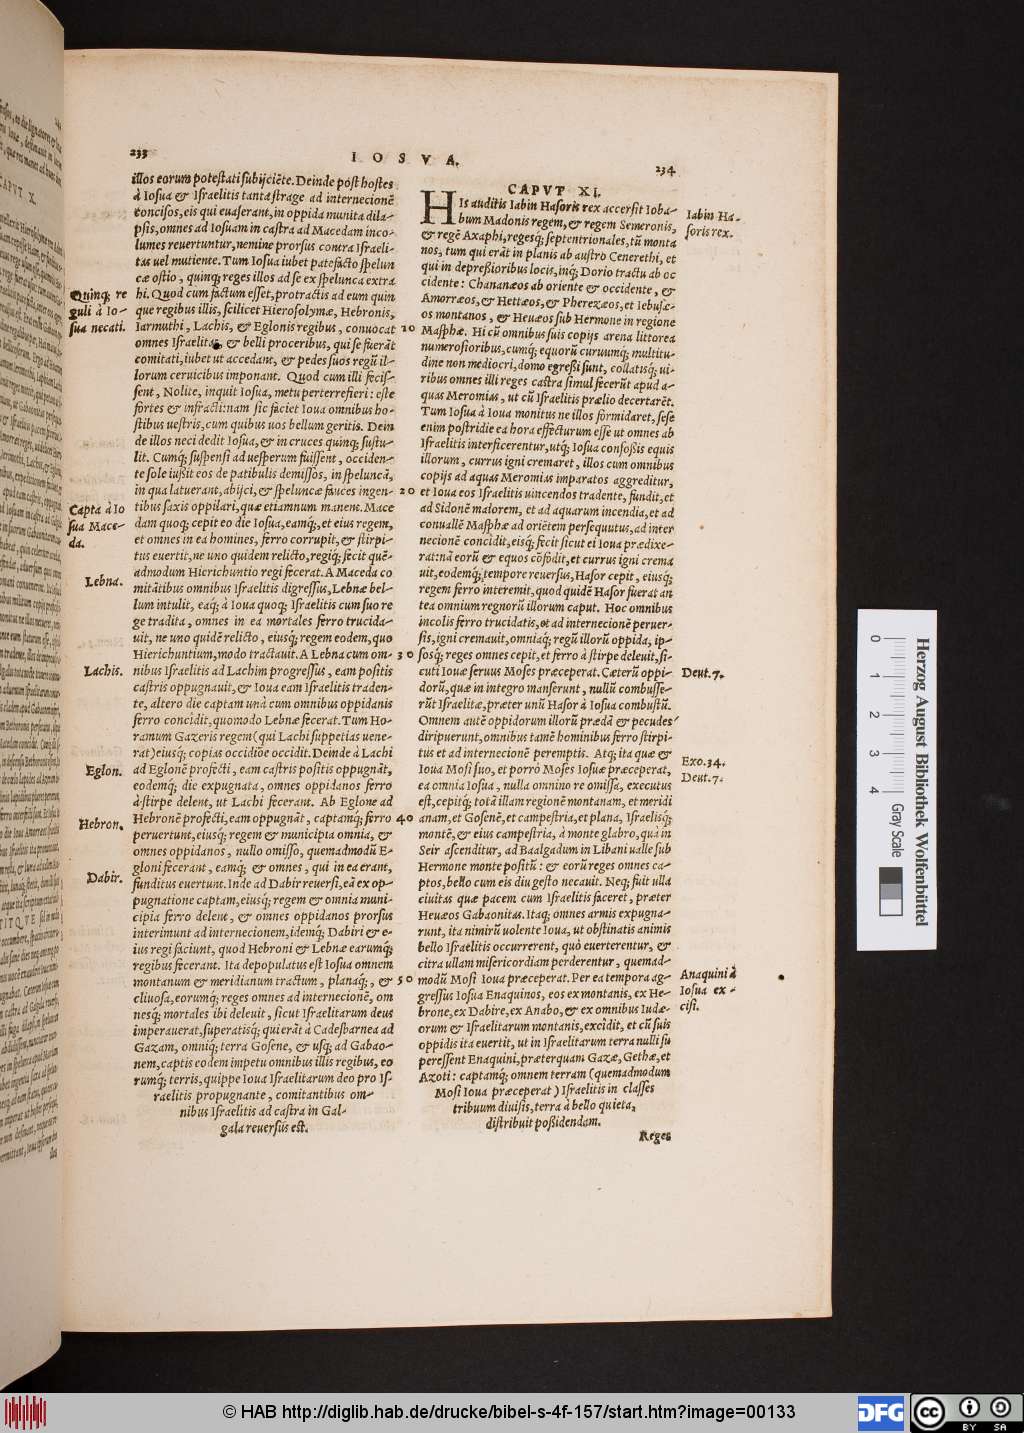 233
IOSVA.
234
illos eorum potestati subijciēte. Deinde post hostes
à Iosua & Israelitis tanta strage ad internecionē
concisos, eis qui euaserant, in oppida munita dila-
psis, omnes ad Iosuam in castra ad Macedam inco-
lumes reuertuntur, nemine prorsus contra Israeli-
tas uel mutiente. Tum Iosua iubet patefacto spelun
cæ ostio, quinq; reges illos ad se ex spelunca extra
Quinq; re
guli à Io-
sua necati.
hi. Quod cum factum esset, protractis ad eum quin
que regibus illis, scilicet Hierosolymæ, Hebronis,
Iarmuthi, Lachis, & Eglonis regibus, conuocat 10
omnes Israelitas, & belli proceribus, qui se fuerāt
comitati, iubet ut accedant, & pedes suos regū il-
lorum ceruicibus imponant. Quod cum illi fecis-
sent, Nolite, inquit Iosua, metu perterrefieri: este
fortes & infracti: nam sic faciet Ioua omnibus ho-
stibus uestris, cum quibus uos bellum geritis. Dein
de illos neci dedit Iosua, & in cruces quinq; sustu-
lit. Cumq; suspensi ad uesperum fuissent, occiden-
te sole iußit eos de patibulis demissos, in speluncā,
in qua latuerant, abijci, & speluncæ fauces ingen- 20
Capta à Io
sua Mace-
da.
tibus saxis oppilari, quæ etiamnum manent. Mace
dam quoq; cepit eo die Iosua, eamq;, et eius regem,
et omnes in ea homines, ferro corrupit, & stirpi-
tus euertit, ne uno quidem relicto, regiq; fecit quē-
admodum Hierichuntio regi fecerat. A Maceda co
Lebna.
mitātibus omnibus Israelitis digressus, Lebnæ bel-
lum intulit, eaq; à Ioua quoq; Israelitis cum suo re
ge tradita, omnes in ea mortales ferro trucida-
uit, ne uno quidē relicto, eiusq; regem eodem, quo
Hierichuntium, modo tractauit. A Lebna cum om- 30
Lachis.
nibus Israelitis ad Lachim progressus, eam positis
castris oppugnauit, & Ioua eam Israelitis traden-
te, altero die captam unà cum omnibus oppidanis
ferro concidit, quomodo Lebnæ fecerat. Tum Ho-
ramum Gazeris regem (qui Lachi suppetias uene-
rat) eiusq; copias occidiōe occidit. Deinde à Lachi
Eglon.
ad Eglonē profecti, eam castris positis oppugnāt,
eodemq; die expugnata, omnes oppidanos ferro
à stirpe delent, ut Lachi fecerant. Ab Eglone ad
Hebron.
Hebronē profecti, eam oppugnāt, captamq; ferro 40
peruertunt, eiusq; regem & municipia omnia, &
omnes oppidanos, nullo omisso, quemadmodū E-
gloni fecerant, eamq; & omnes, qui in ea erant,
Dabir.
funditus euertunt. Inde ad Dabir reuersi, eā ex op-
pugnatione captam, eiusq; regem & omnia muni-
cipia ferro delent, & omnes oppidanos prorsus
interimunt ad internecionem, idemq; Dabiri & e-
ius regi faciunt, quod Hebroni & Lebnæ earumq;
regibus fecerant. Ita depopulatus est Iosua omnem
montanum & meridianum tractum, planaq;, & 50
cliuosa, eorumq; reges omnes ad internecionē, om
nesq; mortales ibi deleuit, sicut Israelitarum deus
imperauerat, superatisq; qui erāt à Cadesbarnea ad
Gazam, omniq; terra Gosene, & usq; ad Gabao-
nem, captis eodem impetu omnibus illis regibus, eo
rumq; terris, quippe Ioua Israelitarum deo pro Is-
raelitis propugnante, comitantibus om-
nibus Israelitis ad castra in Gal-
gala reuersus est.
CAPVT XI.
Iabin Ha-
soris rex.
HIs auditis Iabin Hasoris rex accersit Ioba-
bum Madonis regem, & regem Semeronis,
& regē Axaphi, regesq; septentrionales, tū monta
nos, tum qui erāt in planis ab austro Cenerethi, et
qui in depreßioribus locis, inq; Dorio tractu ab oc
cidente: Chananæos ab oriente & occidente, &
Amorræos, & Hettæos, & Pherezæos, et Iebusæ-
os montanos, & Heuæos sub Hermone in regione
Masphæ. Hi cū omnibus suis copijs arena littorea
numerosioribus, cumq; equorū curuumq; multitu-
dine non mediocri, domo egreßi sunt, collatisq; ui-
ribus omnes illi reges castra simul fecerūt apud a-
quas Meromias, ut cū Israelitis prælio decertarēt.
Tum Iosua à Ioua monitus ne illos formidaret, sese
enim postridie ea hora effecturum esse ut omnes ab
Israelitis interficerentur, utq; Iosua confoßis equis
illorum, currus igni cremaret, illos cum omnibus
copijs ad aquas Meromias imparatos aggreditur,
et Ioua eos Israelitis uincendos tradente, fundit, et
ad Sidonē maiorem, et ad aquarum incendia, et ad
conuallē Masphæ ad oriētem persequutus, ad inter
necionē concidit, eisq; fecit sicut ei Ioua prædixe-
rat: nā eorū & equos cōfodit, et currus igni crema
uit, eodemq; tempore reuersus, Hasor cepit, eiusq;
regem ferro interemit, quod quidē Hasor fuerat an
tea omnium regnorū illorum caput. Hoc omnibus
incolis ferro trucidatis, & ad internecionē peruer-
sis, igni cremauit, omniaq; regū illorū oppida, ip-
sosq; reges omnes cepit, et ferro à stirpe deleuit, si-
Deut. 7.
cuti Iouæ seruus Moses præceperat. Cæterū oppi-
dorū, quæ in integro manserunt, nullū combusse-
rūt Israelitæ, præter unū Hasor à Iosua combustū.
Omnem autē oppidorum illorū prædā & pecudes
diripuerunt, omnibus tamē hominibus ferro stirpi-
tus et ad internecionē peremptis. Atq; ita quæ &
Exo. 34.
Deut. 7.
Ioua Mosi suo, et porrò Moses Iosuæ præceperat,
ea omnia Iosua, nulla omnino re omissa, executus
est, cepitq; totā illam regionē montanam, et meridi
anam, et Gosenē, et campestria, et plana, Israelisq;
montē, & eius campestria, à monte glabro, quà in
Seir ascenditur, ad Baalgadum in Libani ualle sub
Hermone monte positū: & eorū reges omnes ca-
ptos, bello cum eis diu gesto necauit. Neq; fuit ulla
ciuitas quæ pacem cum Israelitis faceret, præter
Heuæos Gabaonitas. Itaq; omnes armis expugna-
runt, ita nimirū uolente Ioua, ut obstinatis animis
bello Israelitis occurrerent, quò euerterentur, &
citra ullam misericordiam perderentur, quemad-
Anaquini à
Iosua ex-
cisi.
modū Mosi Ioua præceperat. Per ea tempora ag-
gressus Iosua Enaquinos, eos ex montanis, ex He-
brone, ex Dabire, ex Anabo, & ex omnibus Iudæ-
orum & Israelitarum montanis, excidit, et cū suis
oppidis ita euertit, ut in Israelitarum terra nulli su
peressent Enaquini, præterquam Gazæ, Gethæ, et
Azoti: captamq; omnem terram (quemadmodum
Mosi Ioua præceperat) Israelitis in classes
tribuum diuisis, terra à bello quieta,
distribuit poßidendam.
Reges
0 1 2 3 4
Herzog August Bibliothek Wolfenbüttel
Gray Scale
© HAB http://diglib.hab.de/drucke/bibel-s-4f-157/start.htm?image=00133
DFG
cc BY SA